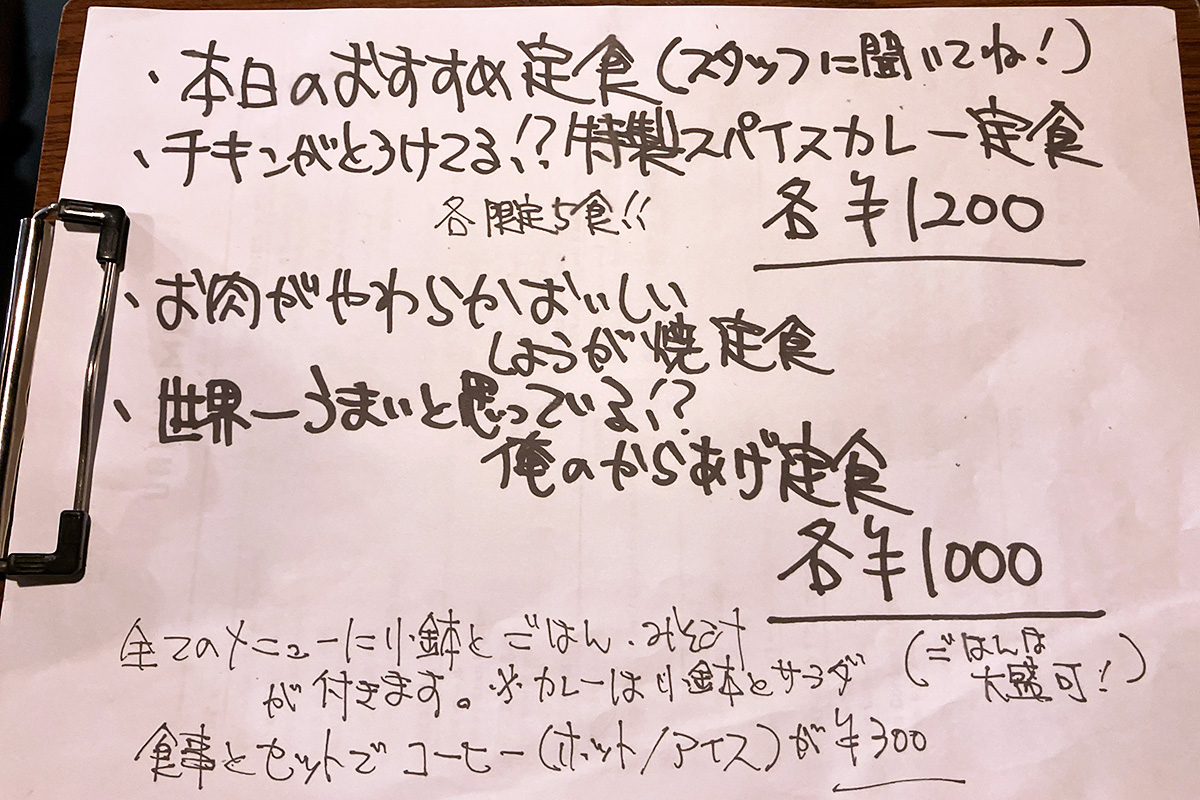 ・本日のおすすめ定食(スタッフに聞いてね!)
・チキンがとろけてる!?特製スパイスカレー定食
各限定5食!! 各¥1200
・お肉がやわらかおいしい
しょうが焼定食
・世界一うまいと思っている!?
俺のからあげ定食
各¥1000
全てのメニューに小鉢とごはん・みそ汁
が付きます。※カレーは小鉢とサラダ
(ごはんは
大盛可!)
食事とセットでコーヒー(ホット/アイス)が¥300